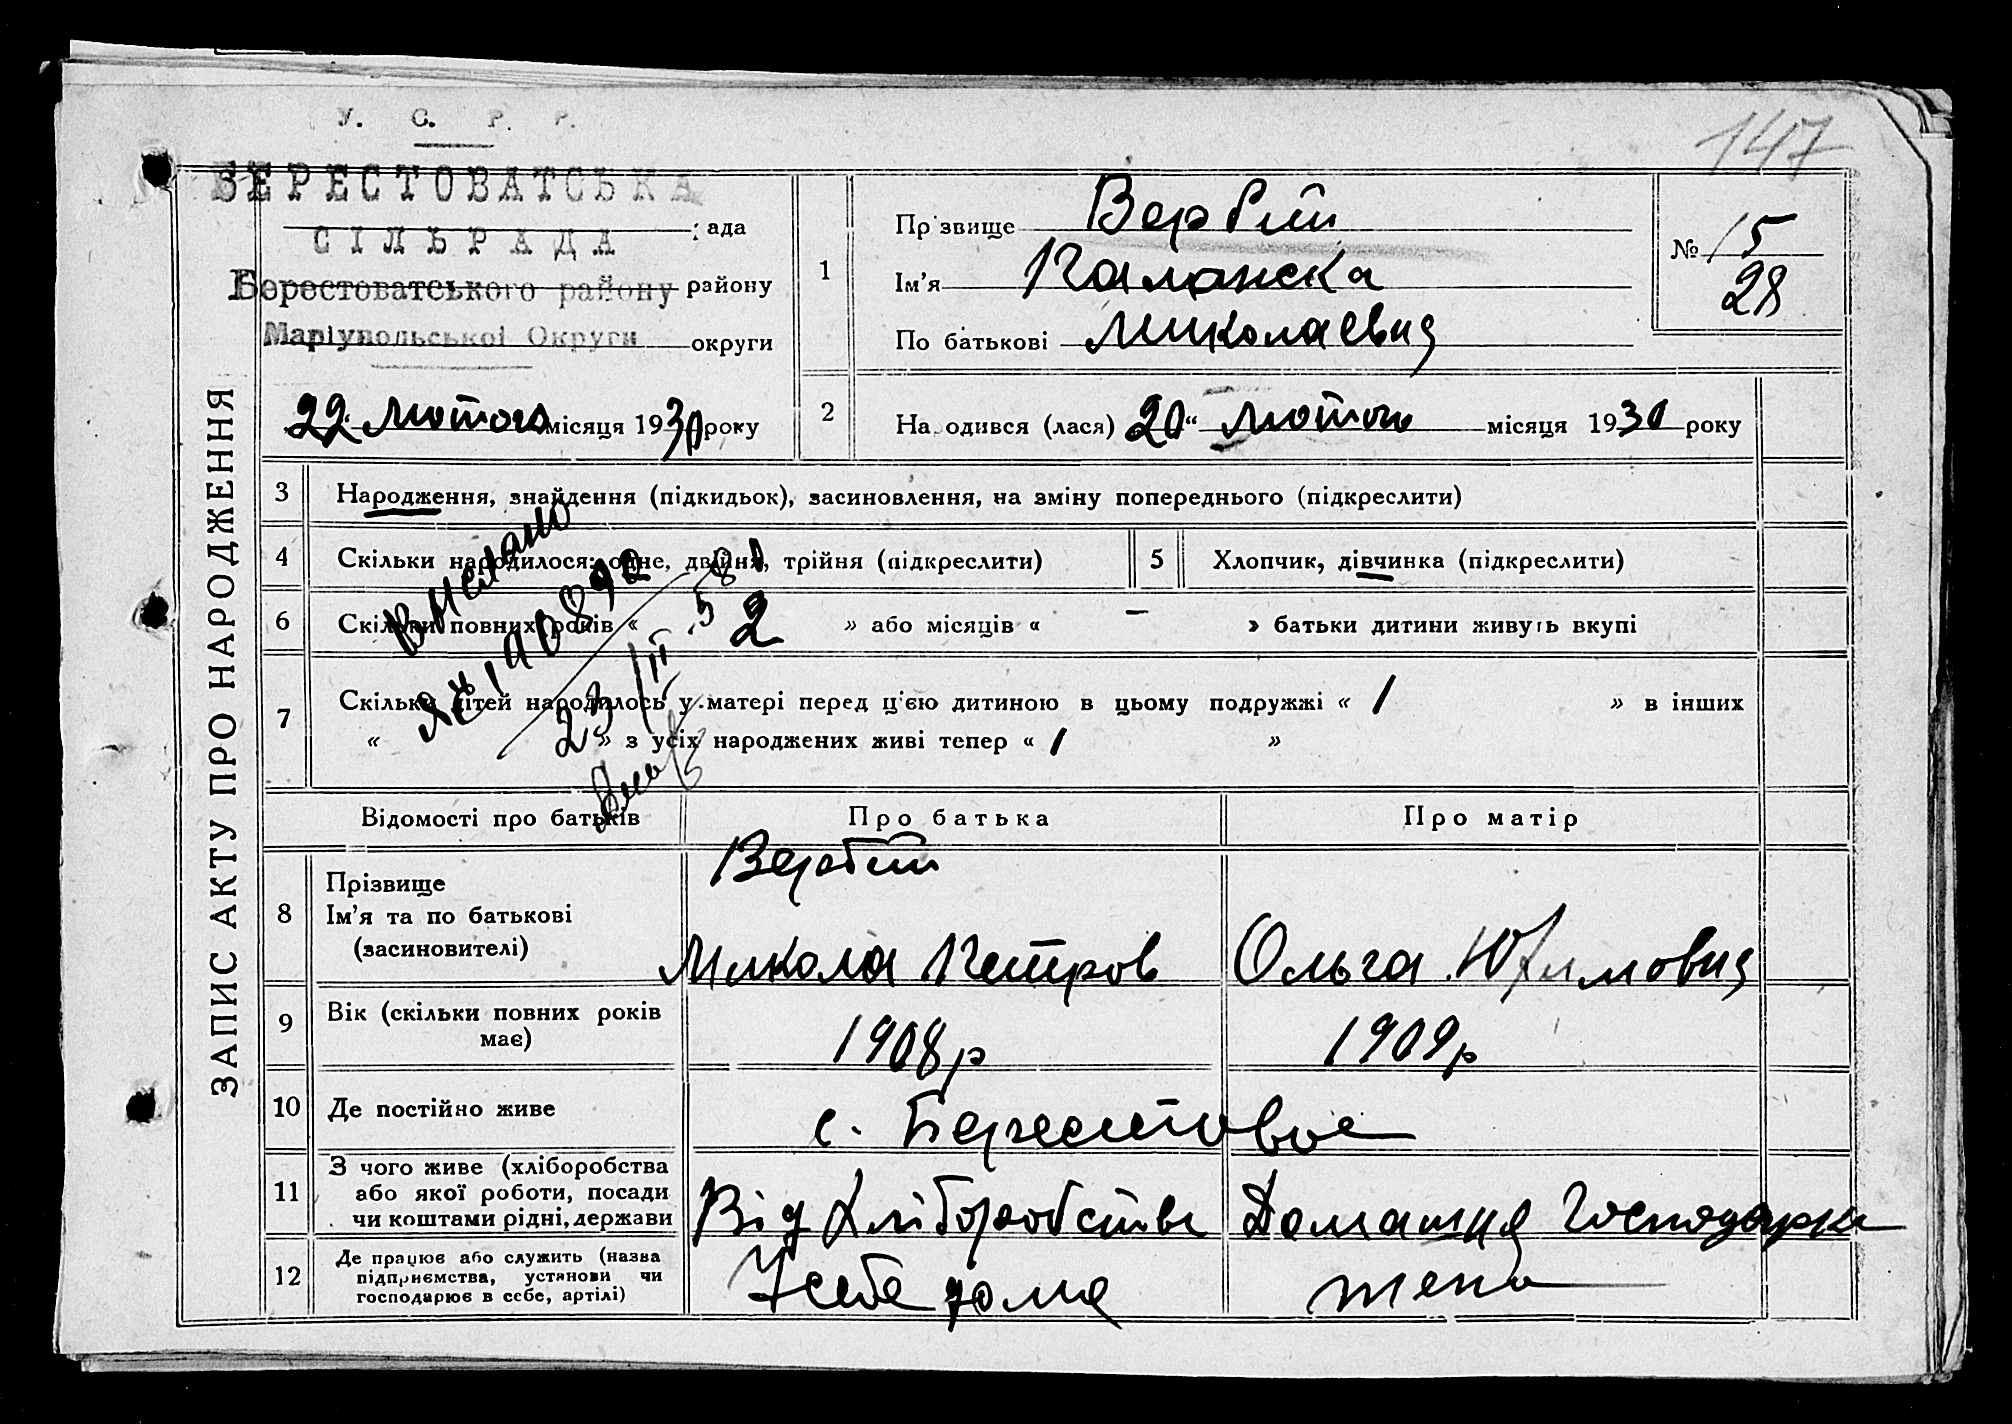 147
У. С. Р. Р.
БЕРЕСТОВАТСЬКА
СІЛЬРАДА
рада
Берестоватського району району
Маріупольської Округи округи
22 Лютого місяця 1930 року
1
Прізвище Вербій
Ім'я Паланска
По батькові Миколаевид
№ 15
28
2
Народився (лася) 20 “ Лютого місяця 1930 року
ЗАПИС АКТУ ПРО НАРОДЖЕННЯ
3 Народження, знайдення (підкидьок), засиновлення, на зміну попереднього (підкреслити)
4 Скільки народилося: одне, двійня, трійня (підкреслити)
5 Хлопчик, дівчинка (підкреслити)
6 Скільки повних років « 2 » або місяців « — » батьки дитини живуть вкупі
7 Скільки дітей народилось у матері перед ц'єю дитиною в цьому подружжі « 1 » в інших
« » з усіх народжених живі тепер « 1 »
23/II.58
Відомості про батьків
Про батька
Про матір
8 Прізвище
Ім'я та по батькові
(засиновителі)
Вербій
Микола Петров
Ольга Юхимовид
9 Вік (скільки повних років
має)
1908 р
1909 р
10 Де постійно живе
с. Берестовое
11 З чого живе (хліборобства
або якої роботи, посади
чи коштами рідні, держави
Від Хліборобства
Домашня Господарка
12 Де працює або служить (назва
підприємства, установи чи
господарює в себе, артілі)
У себе дома
жена